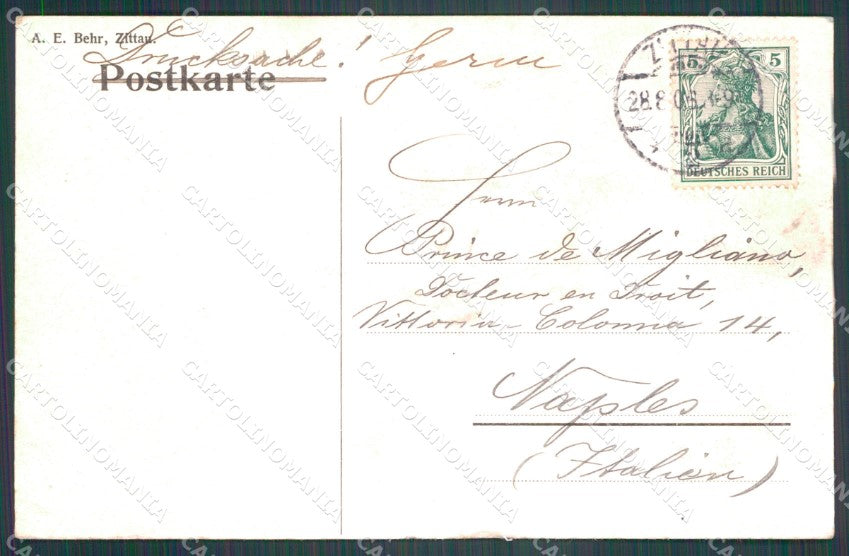 A. E. Behr, Zittau.
Drucksache!
Postkarte
5 5
DEUTSCHES REICH
Herrn
Prince de Migliano,
Docteur en Droit,
Vittoria-Colonna 14,
Naples
(Italien)
CARTOLINOMANIA